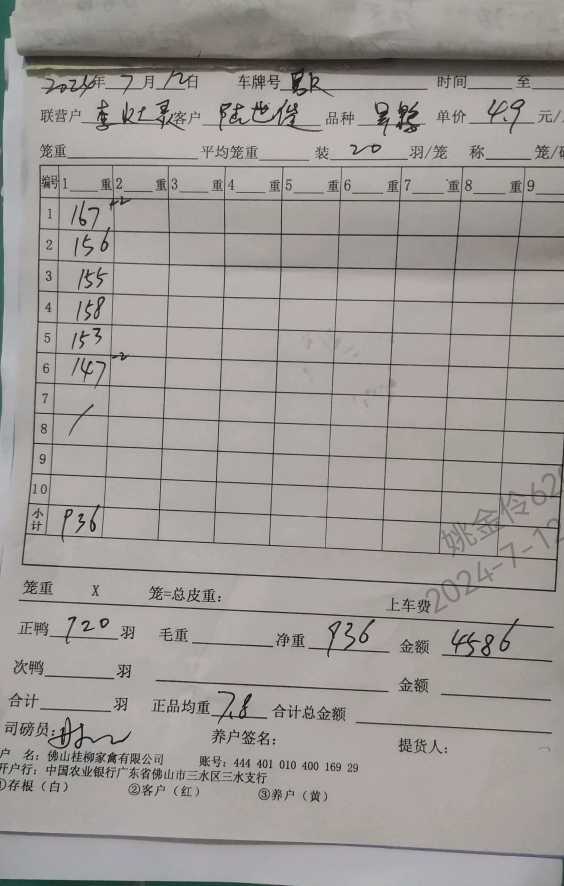 2024年 7 月 12日 车牌号 时间 至
联营户 客户 陆世佳 品种 单价 4.9 元/
笼重 平均笼重 装 20 羽/笼 称 笼/
编号 1 重 2 重 3 重 4 重 5 重 6 重 7 重 8 重 9
1 167 +2
2 156
3 155
4 158
5 153
6 147 -2
7
8 /
9
10
小计 936
笼重 X 笼=总皮重: 上车费
正鸭 120 羽 毛重 净重 936 金额 4586
次鸭 羽 金额
合计 羽 正品均重 7.8 合计总金额
司磅员: 养户签名: 提货人:
户 名: 佛山桂柳家禽有限公司 账号: 444 401 010 400 169 29
开户行: 中国农业银行广东省佛山市三水区三水支行
①存根(白) ②客户(红) ③养户(黄)
姚金伶62
2024-7-12